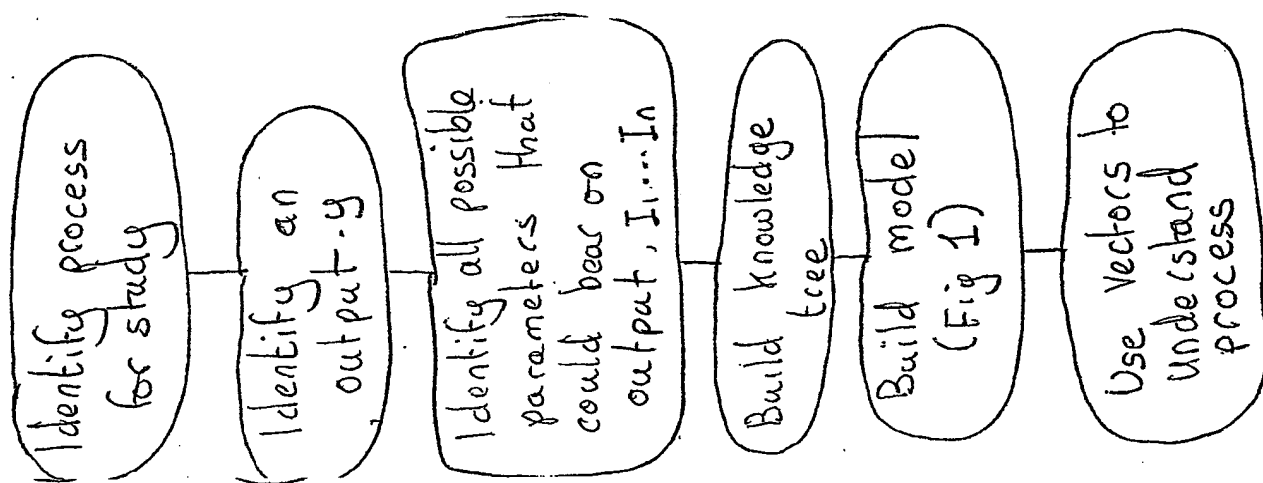 Identify process
for study
Identify an
output. y
Identify all possible
parameters that
could bear on
output, I1....In
Build knowledge
tree
Build model
(Fig 1)
Use vectors to
understand
process